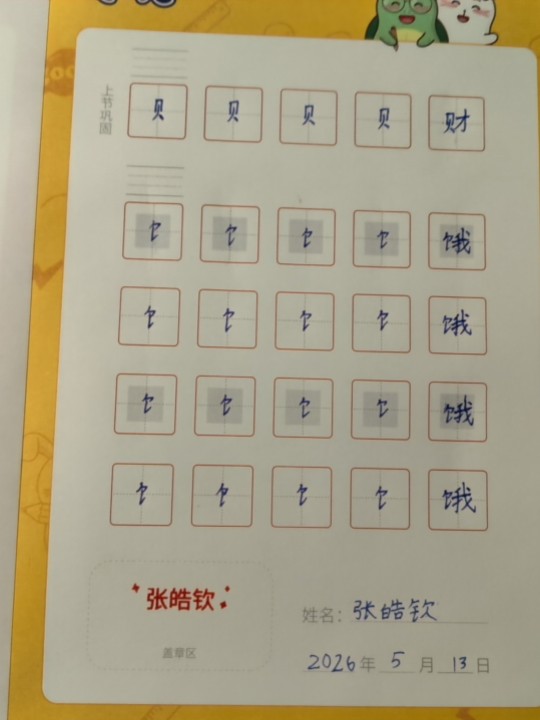 上节巩固
贝 贝 贝 贝 财
饣 饣 饣 饣 饿
饣 饣 饣 饣 饿
饣 饣 饣 饣 饿
饣 饣 饣 饣 饿
张皓钦
盖章区
姓名：张皓钦
2026年 5月 13日